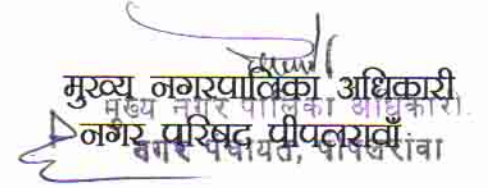 मुख्य नगरपालिका अधिकारी
मुख्य नगर पालिका अधिकारी
नगर परिषद पीपलरावाँ
नगर पंचायत, पीपलरांवा